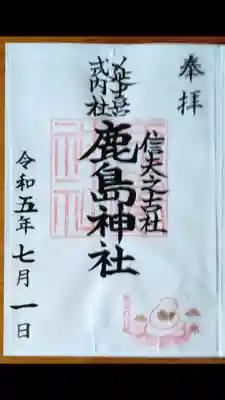 奉拝
信夫之古社
鹿島神社
延喜式内社
令和五年七月一日